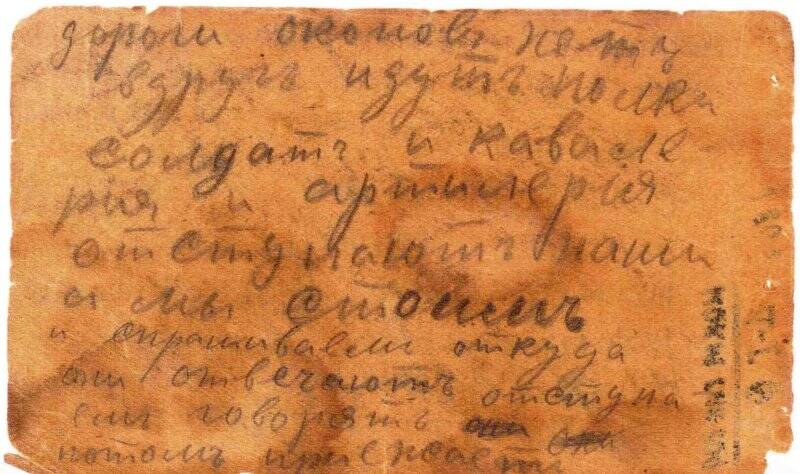 дороги окоповъ нетъ
вдругъ идутъ полки
солдатъ и кавале
рия и артилерiя
отступаютъ наши
а мы стоимъ
и спрашиваем откуда
они отвечаютъ отступа
ем говорятъ они они
потомъ приежаетъ